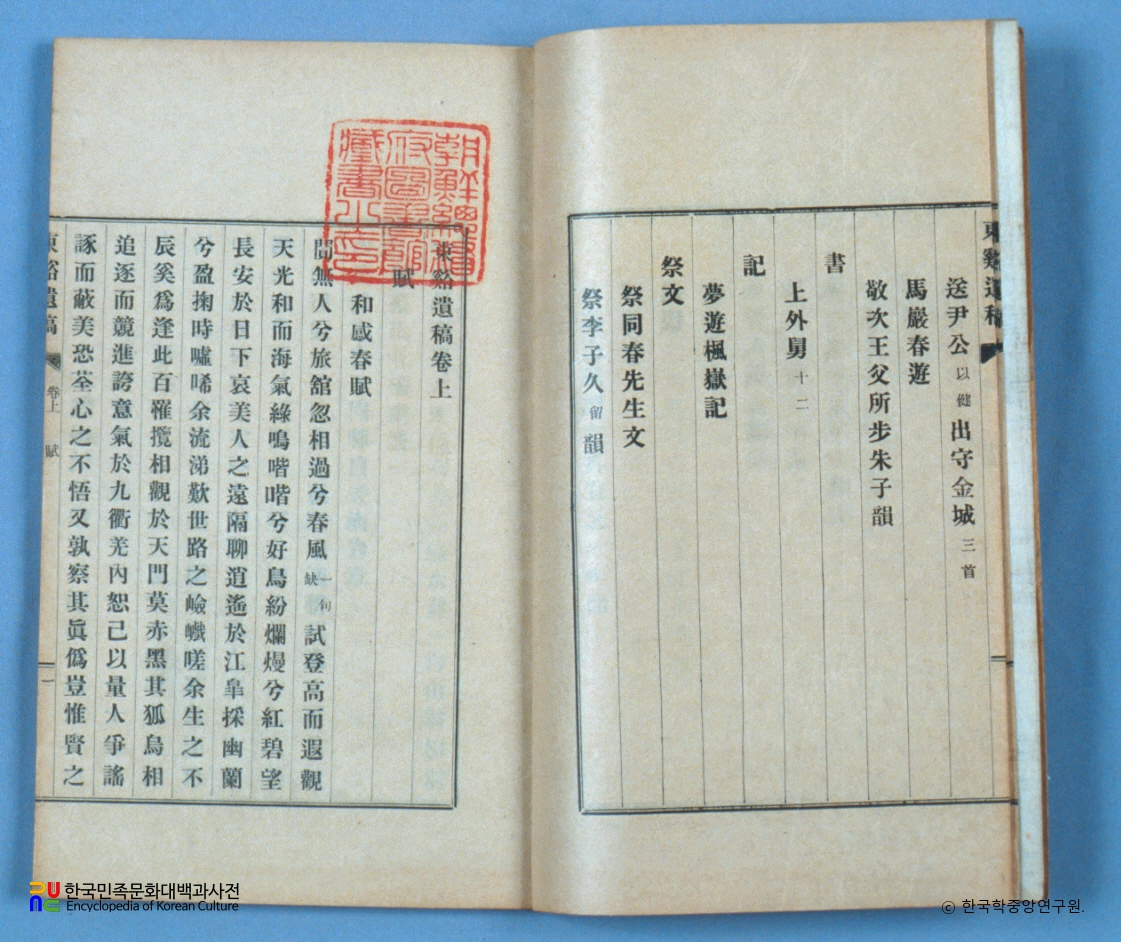 東谿遺稿
送尹公以健出守金城三首
馬巖春遊
敬次王父所步朱子韻
書
上外舅十二
記
夢遊楓嶽記
祭文
祭同春先生文
祭李子久留韻
朝鮮總督
府圖書館
藏書之印
東谿遺稿卷上
賦
和感春賦
間無人兮旅舘忽相過兮春風一句缺試登高而遐觀
天光和而海氣綠鳴喈喈兮好鳥紛爛熳兮紅碧望
長安於日下哀美人之遠隔聊逍遙於江皐採幽蘭
兮盈掬時噓唏余流涕歎世路之嶮巇嗟余生之不
辰奚爲逢此百罹攬相觀於天門莫赤黑其狐烏相
追逐而競進誇意氣於九衢羌內恕己以量人爭謠
諑而蔽美恐荃心之不悟又孰察其眞僞豈惟賢之
東谿遺稿 卷上 賦 一
한국민족문화대백과사전
Encyclopedia of Korean Culture
© 한국학중앙연구원.